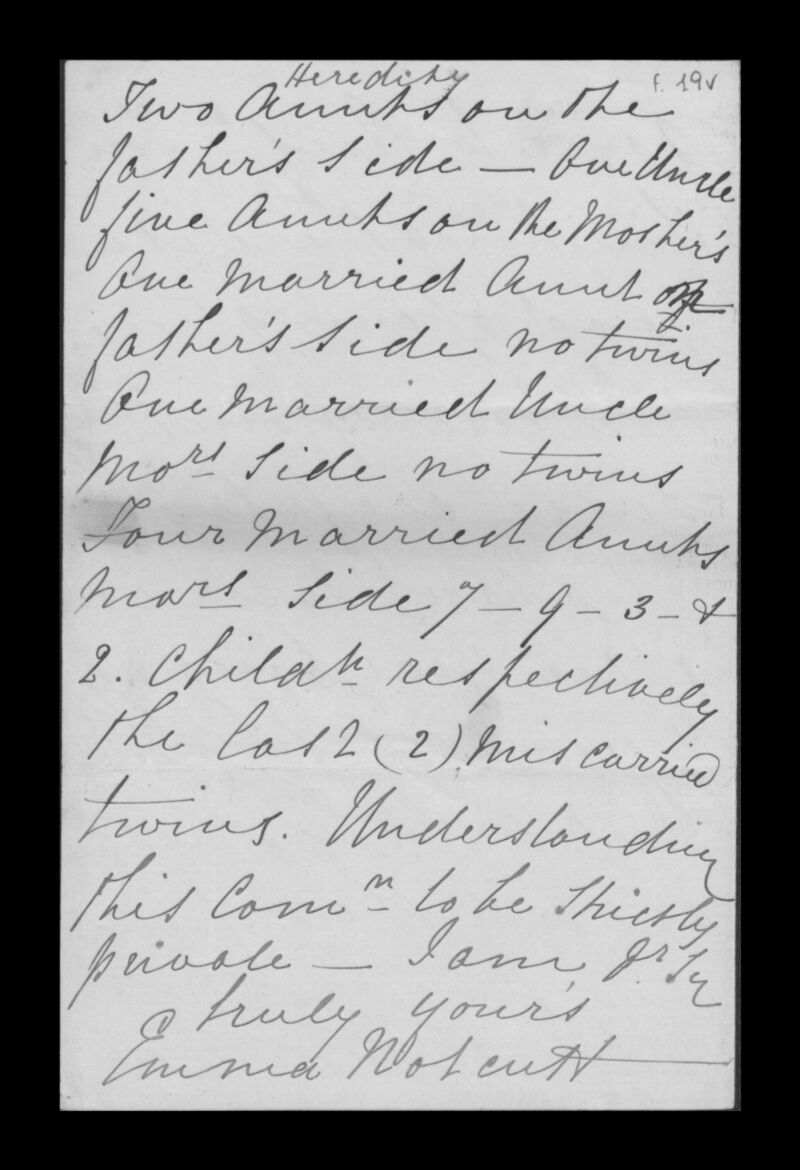 Heredity
f. 19v
Two Aunts on the
father's side — One Uncle
five Aunts on the Mother's
One married Aunt on
father's side no twins
One married Uncle
Mors side no twins
Four married Aunts
Mors side 7 - 9 - 3 - &
2. Childn respectively
the last (2) Miscarried
twins. Understanding
this Comn to be Strictly
private — I am
truly yours
Emma Notcutt